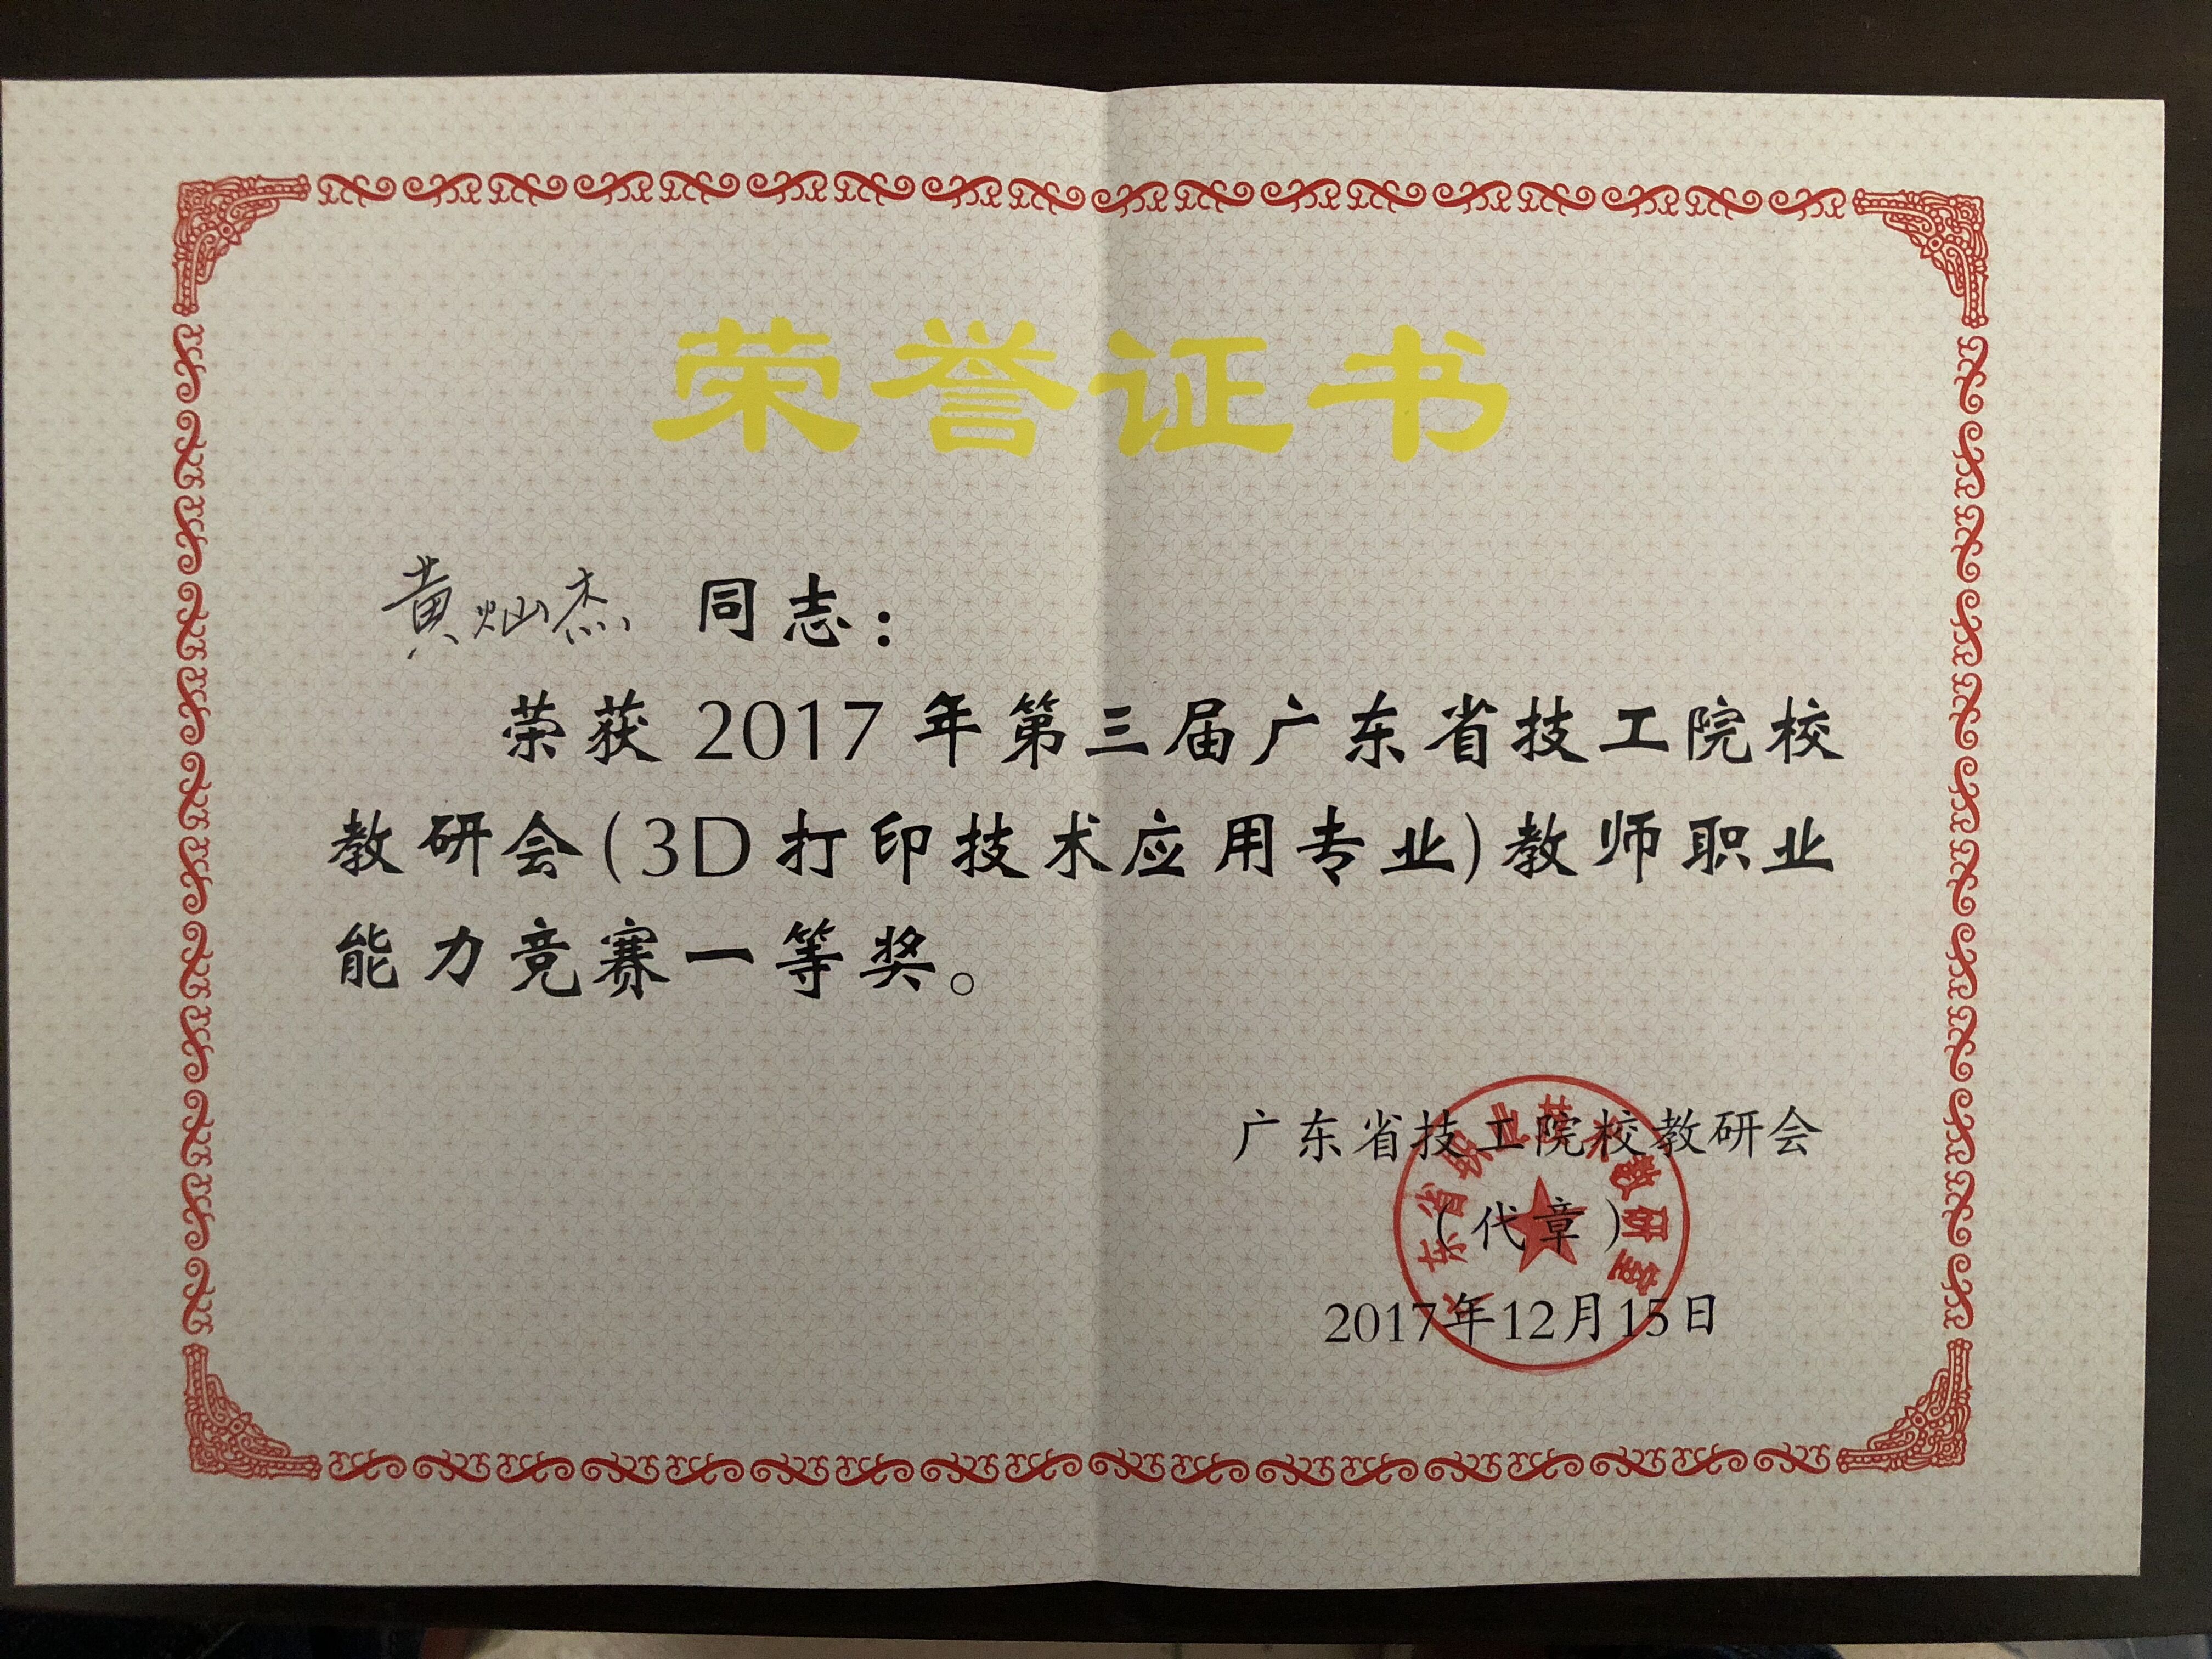 荣誉证书
黄灿杰 同志：
荣获 2017 年第三届广东省技工院校
教研会(3D 打印技术应用专业)教师职业
能力竞赛一等奖。
广东省技工院校教研会
(代章)
2017年12月15日
广东省职业技术教研室